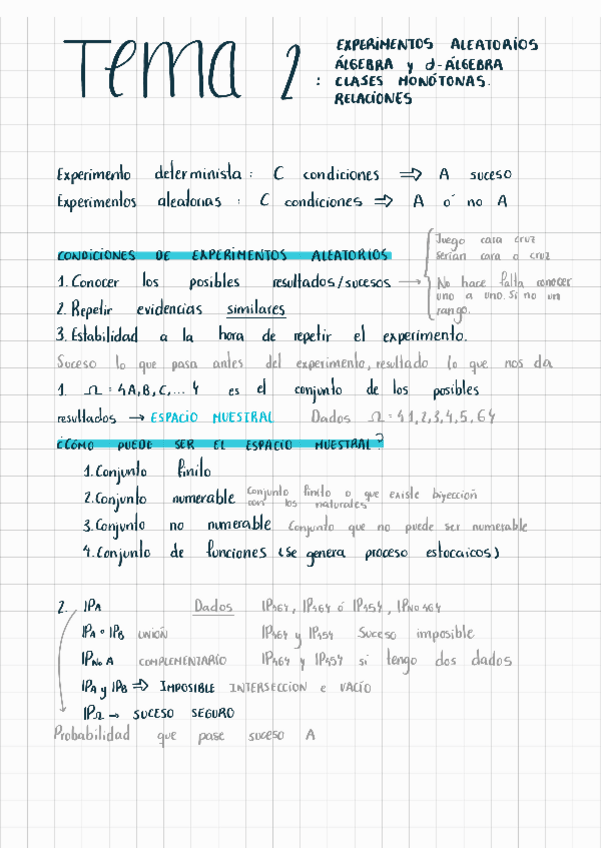 Tema 2 :
EXPERIMENTOS ALEATORIOS
ÁLGEBRA y σ-ÁLGEBRA
CLASES MONÓTONAS.
RELACIONES
Experimento determinista: C condiciones ⇒ A suceso
Experimentos aleatorios : C condiciones ⇒ A ó no A
CONDICIONES DE EXPERIMENTOS ALEATORIOS
1. Conocer los posibles resultados/sucesos →
Juego cara cruz
serían cara o cruz
No hace falta conocer
uno a uno. Si no un
rango.
2. Repetir evidencias similares
3. Estabilidad a la hora de repetir el experimento.
Suceso lo que pasa antes del experimento, resultado lo que nos da
1. Ω = {A, B, C, ... } es el conjunto de los posibles
resultados → ESPACIO MUESTRAL Dados Ω = {1,2,3,4,5,6}
¿CÓMO PUEDE SER EL ESPACIO MUESTRAL?
1. Conjunto finito
2. Conjunto numerable Conjunto finito o que existe biyección
con los naturales
3. Conjunto no numerable Conjunto que no puede ser numerable
4. Conjunto de funciones (se genera proceso estocaicos)
2. IP_A Dados IP{6}, IP{6} ó IP{5}, IP NO {6}
IP_A o IP_B UNIÓN IP{6} y IP{5} Suceso imposible
IP_No A COMPLEMENTARIO IP{6} y IP{5} si tengo dos dados
IP_A y IP_B ⇒ IMPOSIBLE INTERSECCION e VACÍO
IP_Ω → SUCESO SEGURO
Probabilidad que pase suceso A